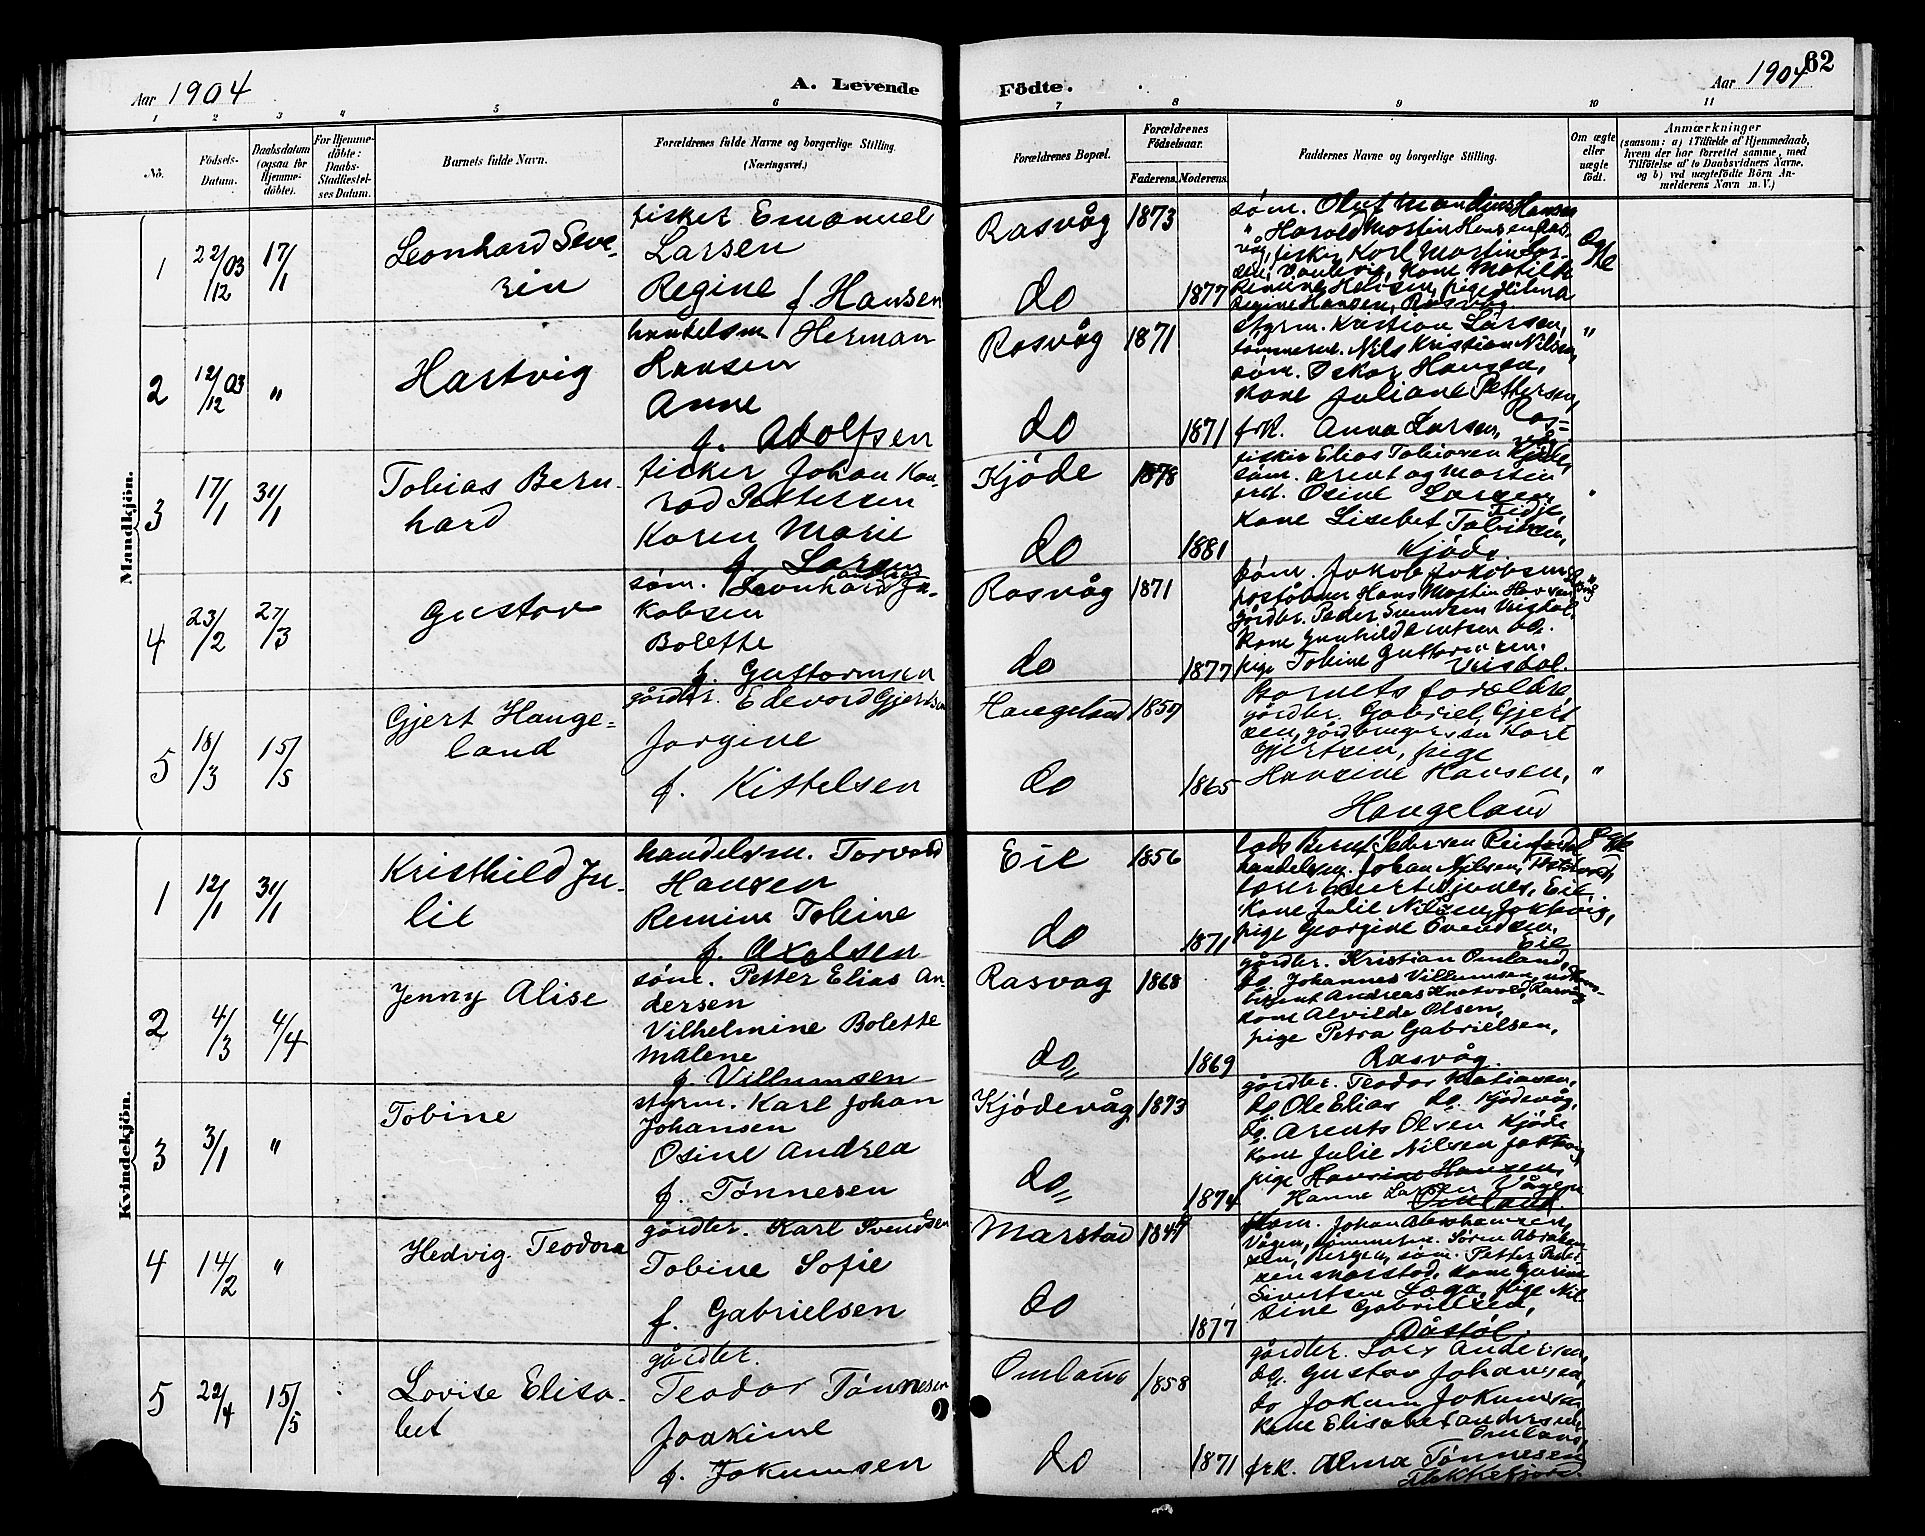 Aar 1904
A. Levende
Födte.
Aar 1904
62
1 2 3 4 5 6 7 8 9 10 11
No.
Födsels-
Datum.
Daabsdatum
(ogsaa for
Hjemme-
döbte).
For Hjemme-
döbte:
Daabs-
Stadfæstel-
ses Datum.
Barnets fulde Navn.
Forældrenes fulde Navne og borgerlige Stilling.
(Næringsvei.)
Forældrenes Bopæl.
Forældrenes
Födselsaar.
Faderens. Moderens.
Faddernes Navne og borgerlige Stilling.
Om ægte
eller
uægte
födt.
Anmærkninger
(saasom: a) i Tilfælde af Hjemmedaab,
hvem der har forrettet samme, med
Tilföielse af to Daabsvidners Navne.
og b) ved uægtefödte Börn An-
melderens Navn m. V.)
Mandkjön.
1
22/12 03
17/1
Leonhard Seve-
rin
fisker Emanuel
Larsen
Regine f Hansen
Rasvåg
do
1873
1877
søm. Olaf Mandius Hansen
" Harald Martin Hansen, Ras-
våg, fisker Karl Martin Lar-
Regine Hansen, Rasvåg
Ægte
2
12/12 03
"
Hartvig
handelsm Herman
Hansen
Anne
f. Adolfsen
Rasvåg
do
1871
1871
styrm. Kristian Larsen,
tømmerm. Nils Kristian Nilsen,
søm. Oskar Hansen,
kone Juliane Pettersen,
frk. Anna Larsen, Ras-
våg
"
3
17/1
31/1
Tobias Bern-
hard
fisker Johan Kon-
rad Pettersen
Karen Marie
f. Larsen
Kjøde
do
1878
1881
fisker Elias Tobiasen Kjøde,
søm. Arent og Martin
Osine Larsen,
Fidje,
kone Lisebet Tobiasen,
Kjøde.
"
4
23/2
27/3
Gustav
søm. Leonhard Ja-
kobsen
Bolette
f. Guttormsen
Rasvåg
do
1871
1877
søm. Jakob Jakobsen
Hans Martin
gårdbr. Peder Svendsen
kone Gunhild
pige Tobine Guttormsen.
"
5
18/3
15/5
Gjert Hauge-
land
gårdbr. Edevard Gjertsen
Jørgine
f. Kittelsen
Haugeland
do
1857
1865
Barnets forældre,
gårdbr. Gabriel Gjert
sen, Karl
Gjertsen, pige
Hansine Hansen,
Haugeland
"
Kvindekjön.
1
12/1
31/1
Kristhild Ju-
lie
handelsm. Torvald
Hansen
Remine Tobine
f. Axelsen
Eie
do
1856
1871
lods Bernt Pedersen
handelsm. Johan Nilsen,
Eie
kone Julie Nilsen,
pige Georgine Svendsen,
Eie
Ægte
2
4/3
4/4
Jenny Alise
søm. Petter Elias An-
dersen
Vilhelmine Bolette
Malene
f. Villumsen
Rasvag
do "
1868
1869
gårdbr. Kristian Omland,
do. Johannes Villumsen,
Andreas Knatvold, Rasvåg
kone Alvilde Olsen,
pige Petra Gabrielsen,
Rasvåg.
3
3/1
"
Tobine
styrm. Karl Johan
Johansen
Osine Andrea
f. Tønnesen
Kjødevåg
do "
1873
1874
gårdbr. Teodor Matiasen,
do Ole Elias do. Kjødevåg,
do. Arents Olsen Kjøde
kone Julie Nilsen
pige Hansine Hansen,
Omland.
4
14/2
"
Hedvig Teodora
gårdbr. Karl Svendsen
Tobine Sofie
f. Gabrielsen
Marstad
do
1877
søm. Johan Abrahamsen,
Vågen, tømmerm. Søren Abraham-
sen, Bergen, søm. Petter Peder-
sen Marstad, kone
Sivertsen Loga, pige Nil
sine Gabrielsen,
Dåstøl.
5
22/4
15/5
Lovise Elisa-
bet
gårdbr.
Teodor Tønnesen
Joakime
f. Jokumsen
Omland
do
1858
1871
gårdbr. Lars Andersen,
do. Gustav Johansen,
do Jokum Jokumsen
kone Elisabet Andersen,
Omland,
frk. Alma Tønnesen